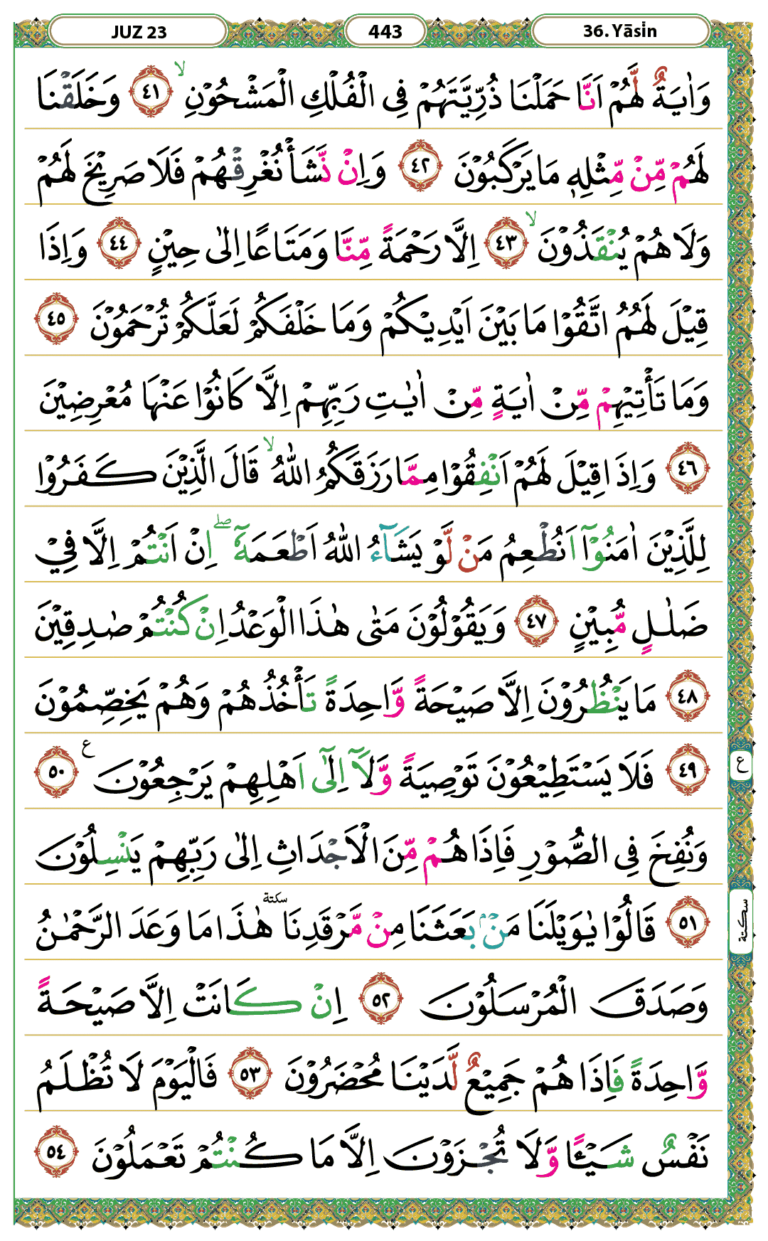 JUZ 23
443
36. Yāsin
وَاٰيَةٌ لَّهُمْ اَنَّا حَمَلْنَا ذُرِّيَّتَهُمْ فِى الْفُلْكِ الْمَشْحُوْنِۙ ٤١ وَخَلَقْنَا
لَهُمْ مِّنْ مِّثْلِهٖ مَا يَرْكَبُوْنَ ٤٢ وَاِنْ نَّشَأْ نُغْرِقْهُمْ فَلَا صَرِيْخَ لَهُمْ
وَلَا هُمْ يُنْقَذُوْنَۙ ٤٣ اِلَّا رَحْمَةً مِّنَّا وَمَتَاعًا اِلٰى حِيْنٍ ٤٤ وَاِذَا
قِيْلَ لَهُمُ اتَّقُوْا مَا بَيْنَ اَيْدِيْكُمْ وَمَا خَلْفَكُمْ لَعَلَّكُمْ تُرْحَمُوْنَ ٤٥
وَمَا تَأْتِيْهِمْ مِّنْ اٰيَةٍ مِّنْ اٰيٰتِ رَبِّهِمْ اِلَّا كَانُوْا عَنْهَا مُعْرِضِيْنَ
٤٦ وَاِذَا قِيْلَ لَهُمْ اَنْفِقُوْا مِمَّا رَزَقَكُمُ اللّٰهُۙ قَالَ الَّذِيْنَ كَفَرُوْا
لِلَّذِيْنَ اٰمَنُوْٓا اَنُطْعِمُ مَنْ لَّوْ يَشَاۤءُ اللّٰهُ اَطْعَمَهٗٓۖ اِنْ اَنْتُمْ اِلَّا فِيْ
ضَلٰلٍ مُّبِيْنٍ ٤٧ وَيَقُوْلُوْنَ مَتٰى هٰذَا الْوَعْدُ اِنْ كُنْتُمْ صٰدِقِيْنَ
٤٨ مَا يَنْظُرُوْنَ اِلَّا صَيْحَةً وَّاحِدَةً تَأْخُذُهُمْ وَهُمْ يَخِصِّمُوْنَ
٤٩ فَلَا يَسْتَطِيْعُوْنَ تَوْصِيَةً وَّلَآ اِلٰٓى اَهْلِهِمْ يَرْجِعُوْنَ ع ٥٠
ع
وَنُفِخَ فِى الصُّوْرِ فَاِذَا هُمْ مِّنَ الْاَجْدَاثِ اِلٰى رَبِّهِمْ يَنْسِلُوْنَ
٥١ قَالُوْا يٰوَيْلَنَا مَنْۢ بَعَثَنَا مِنْ مَّرْقَدِنَا سكتة هٰذَا مَا وَعَدَ الرَّحْمٰنُ
سكتة
وَصَدَقَ الْمُرْسَلُوْنَ ٥٢ اِنْ كَانَتْ اِلَّا صَيْحَةً
وَّاحِدَةً فَاِذَا هُمْ جَمِيْعٌ لَّدَيْنَا مُحْضَرُوْنَ ٥٣ فَالْيَوْمَ لَا تُظْلَمُ
نَفْسٌ شَيْـًٔا وَّلَا تُجْزَوْنَ اِلَّا مَا كُنْتُمْ تَعْمَلُوْنَ ٥٤